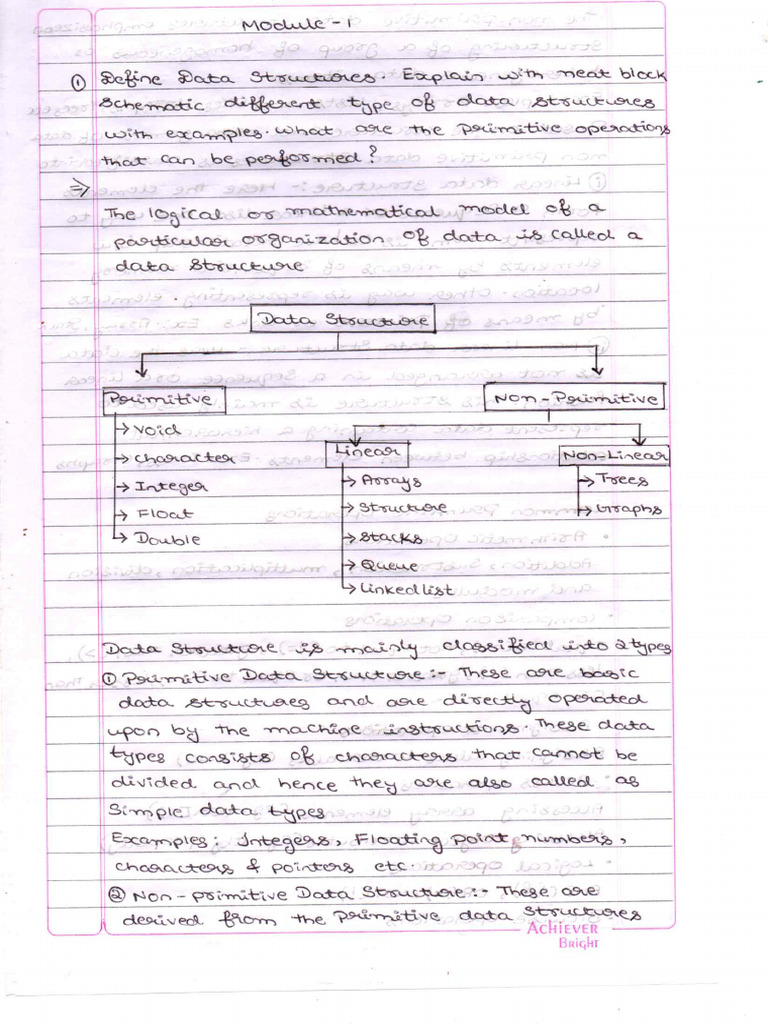 Module - 1
① Define Data Structures. Explain with neat block
schematic different type of data structures
with examples. What are the primitive operations
that can be performed?
⇒
The logical or mathematical model of a
particular organization of data is called a
data structure
Data Structure
Primitive
Non-Primitive
→ Void
→ Character
→ Integer
→ Float
→ Double
Linear
→ Arrays
→ Structure
→ Stacks
→ Queue
→ Linked list
Non-Linear
→ Trees
→ Graphs
Data Structure is mainly classified into 2 types
① Primitive Data Structure :- These are basic
data structures and are directly operated
upon by the machine instructions. These data
types consists of characters that cannot be
divided and hence they are also called as
Simple data types
Examples: Integers, Floating point numbers,
characters & pointers etc.
② Non-primitive Data Structure :- These are
derived from the primitive data structures
ACHIEVER
BRIGHT